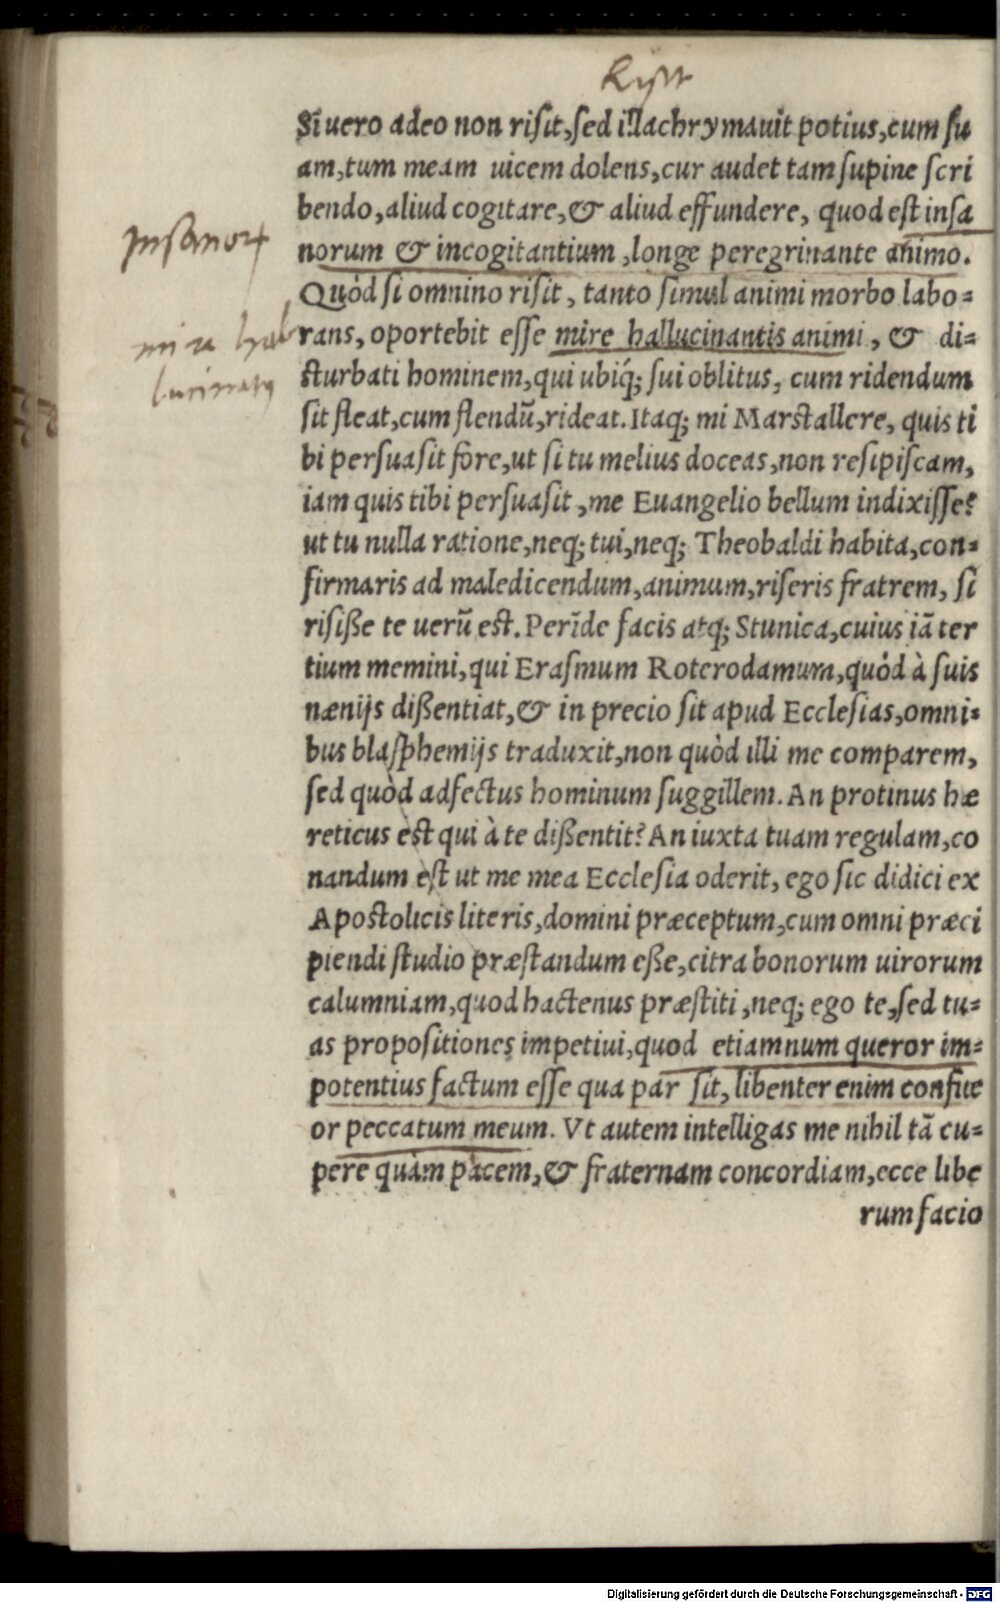 Si uero adeo non risit,sed illachrymauit potius,cum su
am,tum meam uicem dolens,cur audet tam supine scri
bendo,aliud cogitare,& aliud effundere, quod est insa
norum & incogitantium ,longe peregrinante animo.
Insanor
Quòd si omnino risit, tanto simul animi morbo labo=
rans, oportebit esse mire hallucinantis animi, & di=
mire hal
lucinatis
sturbati hominem,qui ubiq; sui oblitus, cum ridendum
sit fleat,cum flendũ,rideat.Itaq; mi Marstallere, quis ti
bi persuasit fore,ut si tu melius doceas,non resipiscam,
iam quis tibi persuasit ,me Euangelio bellum indixisse?
ut tu nulla ratione,neq; tui,neq; Theobaldi habita,con=
firmaris ad maledicendum,animum,riseris fratrem, si
risiße te uerũ est.Perĩde facis atq; Stunica,cuius iã ter
tium memini,qui Erasmum Roterodamum,quòd à suis
nænijs dißentiat,& in precio sit apud Ecclesias,omni=
bus blasphemijs traduxit,non quòd illi me comparem,
sed quòd adfectus hominum suggillem. An protinus hæ
reticus est qui à te dißentit? An iuxta tuam regulam,co
nandum est ut me mea Ecclesia oderit, ego sic didici ex
Apostolicis literis,domini præceptum,cum omni præci
piendi studio præstandum eße,citra bonorum uirorum
calumniam,quod hactenus præstiti,neq; ego te,sed tu=
as propositiones impetiui,quod etiamnum queror im=
potentius factum esse qua par sit, libenter enim confite
or peccatum meum. Vt autem intelligas me nihil tã cu=
pere quàm pacem,& fraternam concordiam,ecce libe
rum facio
Digitalisierung gefördert durch die Deutsche Forschungsgemeinschaft - DFG